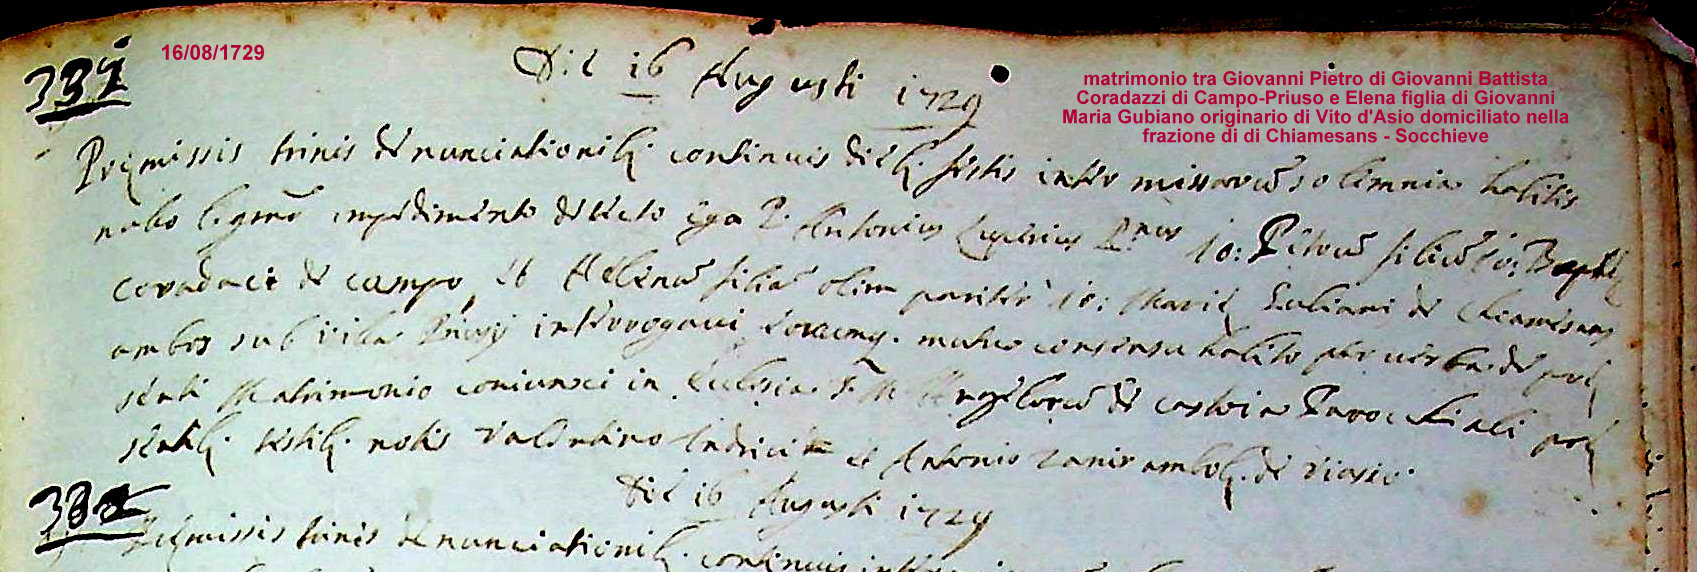 16/08/1729
matrimonio tra Giovanni Pietro di Giovanni Battista
Coradazzi di Campo-Priuso e Elena figlia di Giovanni
Maria Gubiano originario di Vito d'Asio domiciliato nella
frazione di di Chiamesans - Socchieve
337
Die 16 Augusti 1729
Premissis trinis denunciationib. continuis dieb. festis inter missarũ solemnia habitis
nulloq. impedimento detecto ego P. Antonius Io: Petrũ filiũ Io: Bapte
Coradaci de campo, et Helenã filiã olim pariter Io: Marie de Chiamesans
ambos sub villa Priusij interrogavi eorumq. mutuo consensu habito per verba de pre
senti Matrimonio coniunxi in Ecclesia S. M. Angelorũ de castoia Parochiali pre
sentib. testib. notis Valentino et Antonio Zanier ambob. de Viaso
Die 16 Augusti 1729
Premissis trinis denunciationib. continuis